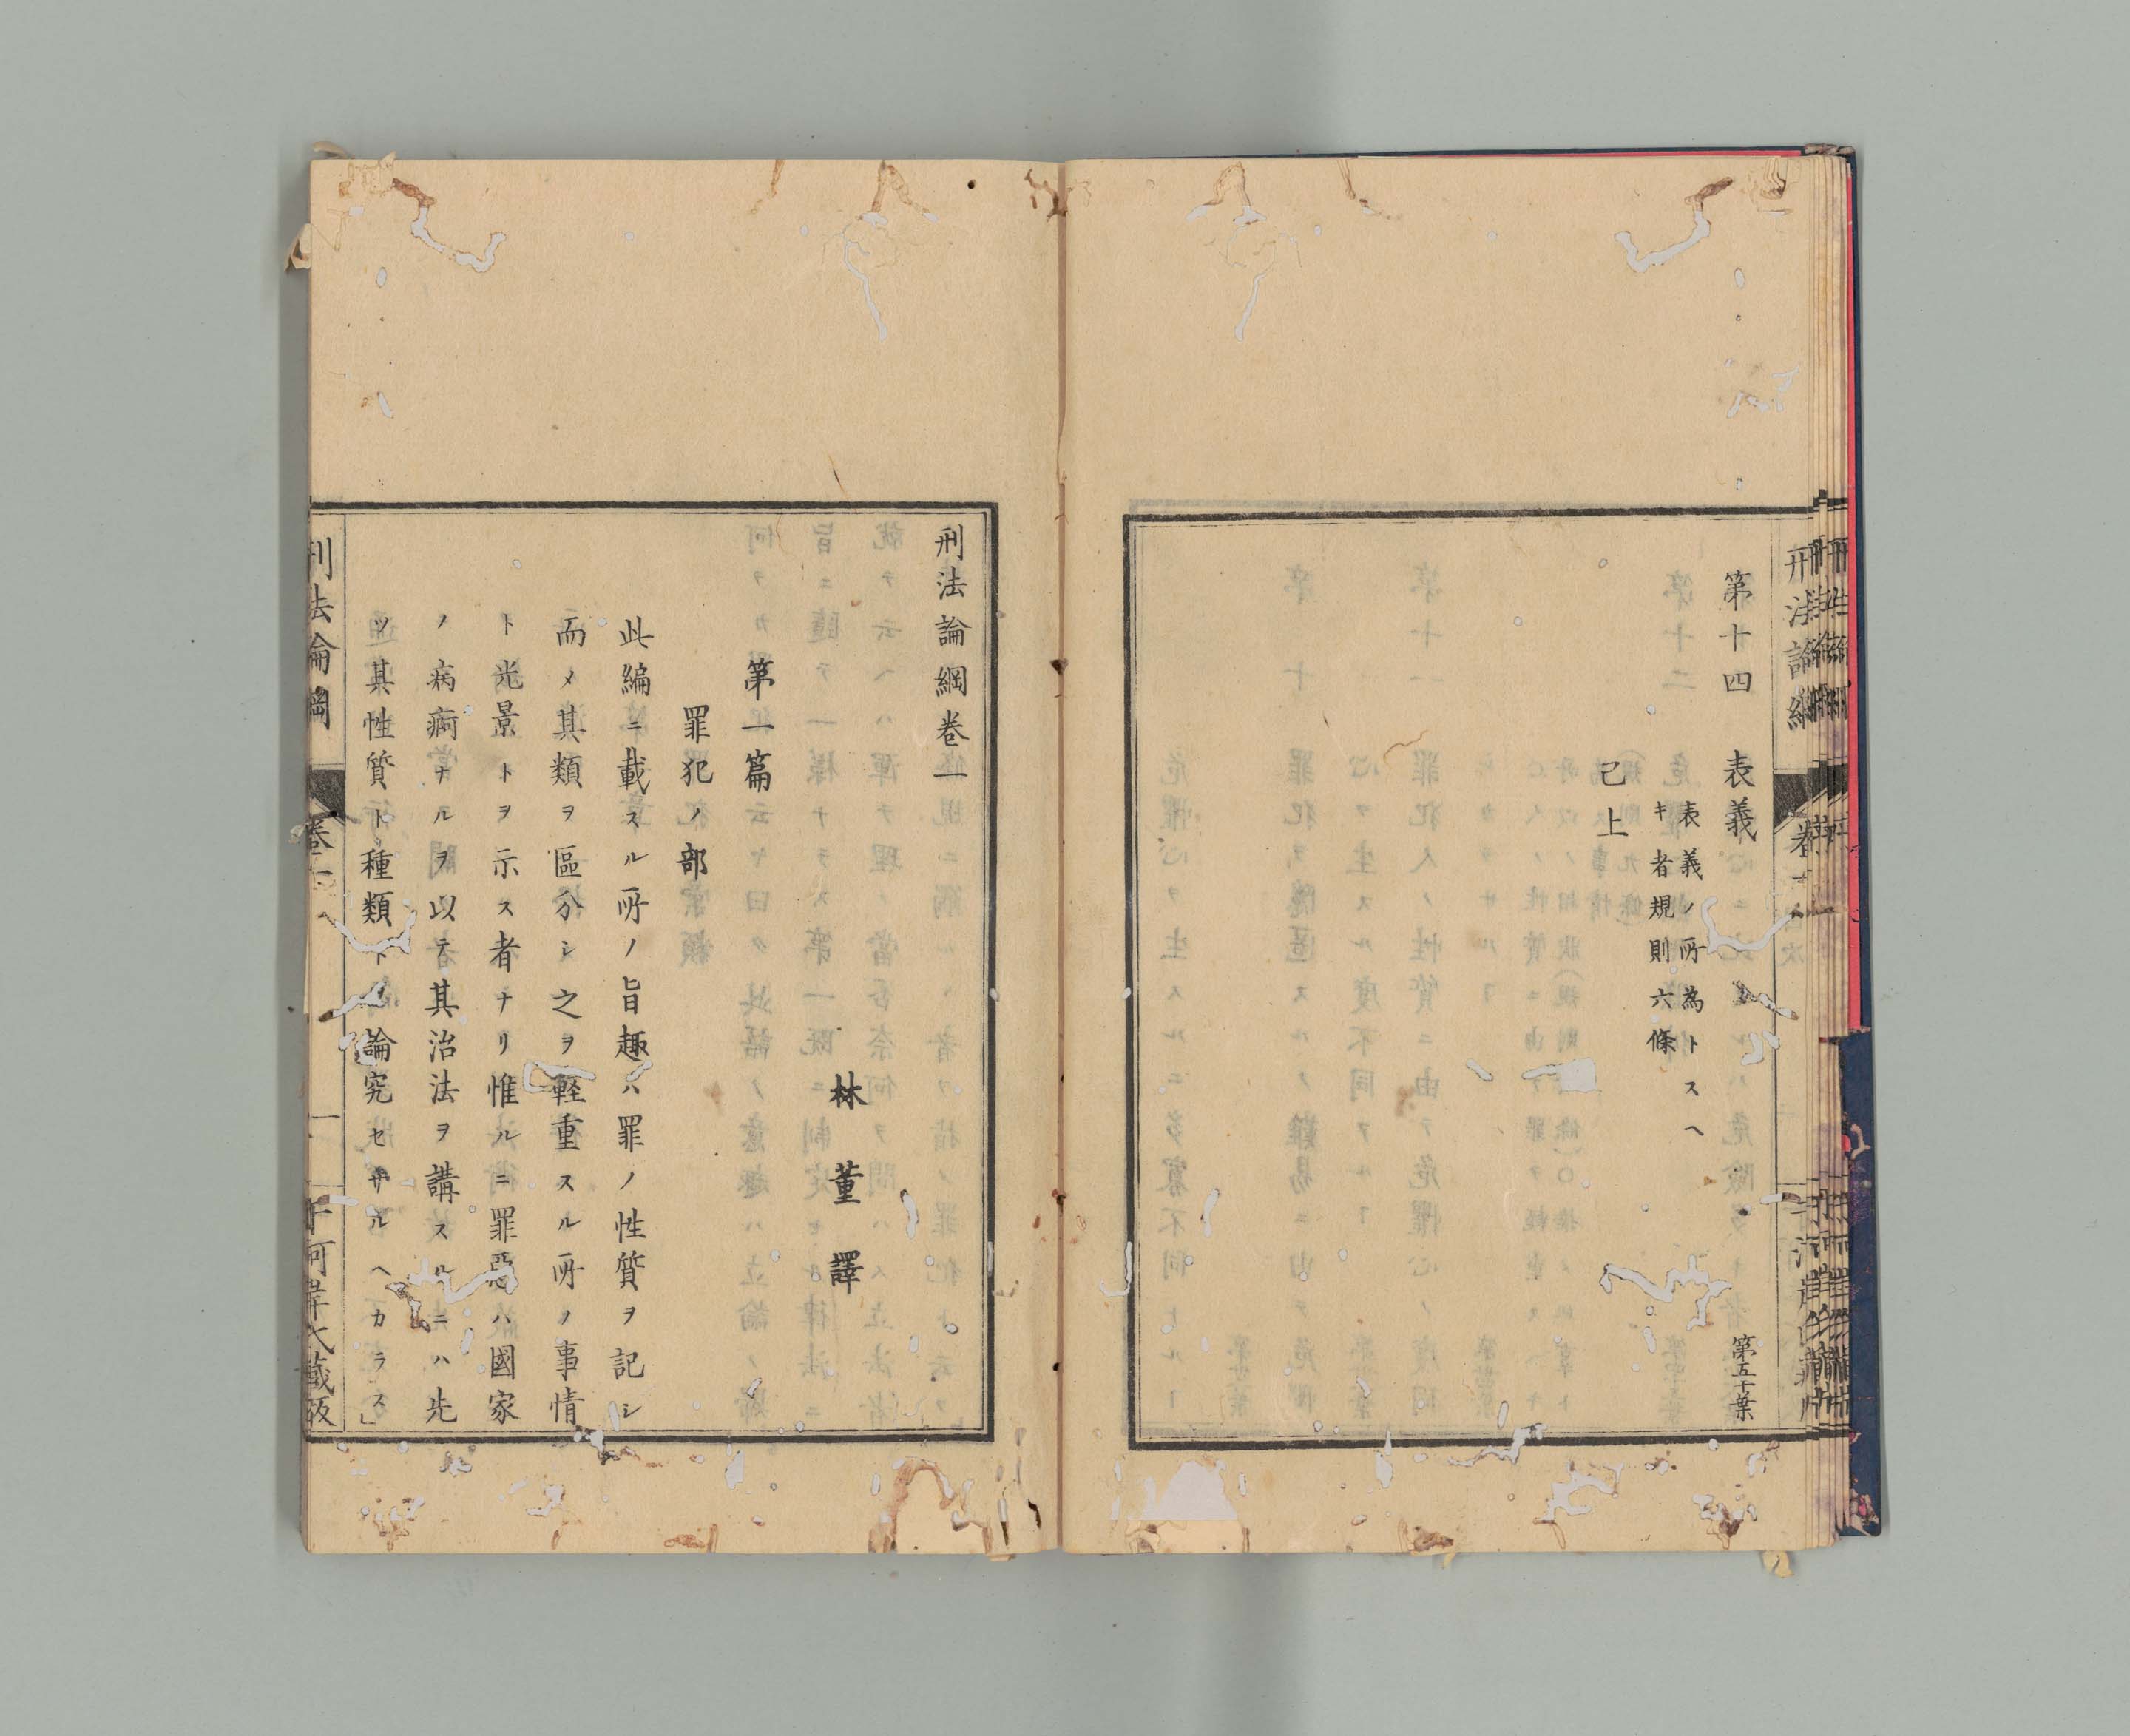 第十四　表義　第五十葉
表義ノ所為トスヘ
キ者規則六條
已上
刑法論綱卷一
林　董　譯
第一篇
罪犯ノ部
此編ニ載スル所ノ旨趣ハ罪ノ性質ヲ記シ
而メ其類ヲ區分シ之ヲ軽重スル所ノ事情
ト光景トヲ示ス者ナリ惟ルニ罪惡ハ國家
ノ病痾ナルヲ以テ其治法ヲ講スルニハ先
ツ其性質ト種類トノ論究セサルヘカラス」
刑法論綱　卷一　一